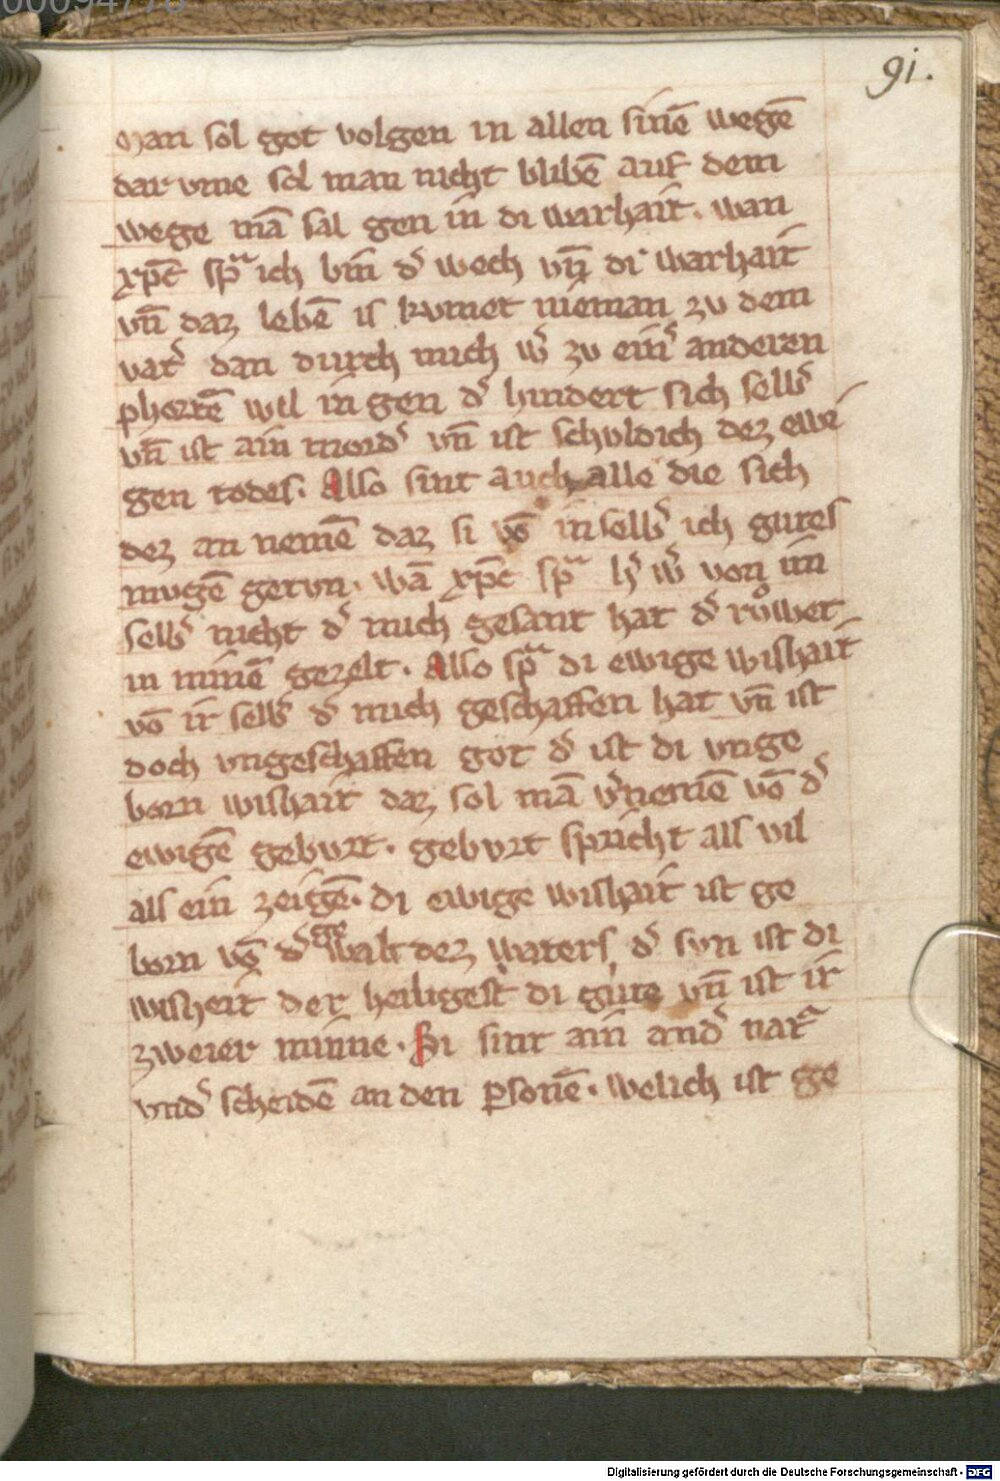 91.
Man sol got volgen in allen sinē wegē
dar vme sol man nicht blibē auf dem
wege mā sal gen in di warhait. wan
xp̄c spᵃ ich bin dˀ wech vn̄ di warhait
vn̄ daz lebē is kvmet nieman zv dem
vatˀ dan durch mich wˀ zv einˀ anderen
phortē wil in gen dˀ hindert sich selbˀ
vn̄ ist ain mordˀ vn̄ ist schvldich dez ewi
gen todes. Also sint auch alle die sich
dez an nemē daz si vō in selbˀ ich gutes
mvgē getvn. wā xp̄c spᵃ hˀ wˀ von im
selbˀ nicht dˀ mich gesant hat dˀ rvͦwet
in minē gezelt. Also spᵃ di ewige wishait
vō ir selbˀ dˀ mich geschaffen hat vn̄ ist
doch vngeschaffen got dˀ ist di vnge
born wishait daz sol mā vˀnemē vō dˀ
ewigē gebvrt. gebvrt spricht als vil
als ein zeigē. di ewige wishait ist ge
born vō dˀ walt dez waters dˀ svn ist di
wisheit der heiligest di gute vn̄ ist ir
zweier minne. Si sint ain andˀ natᵃ
vndˀ scheidē an den ꝑsonē. welich ist ge
Digitalisierung gefördert durch die Deutsche Forschungsgemeinschaft - DFG